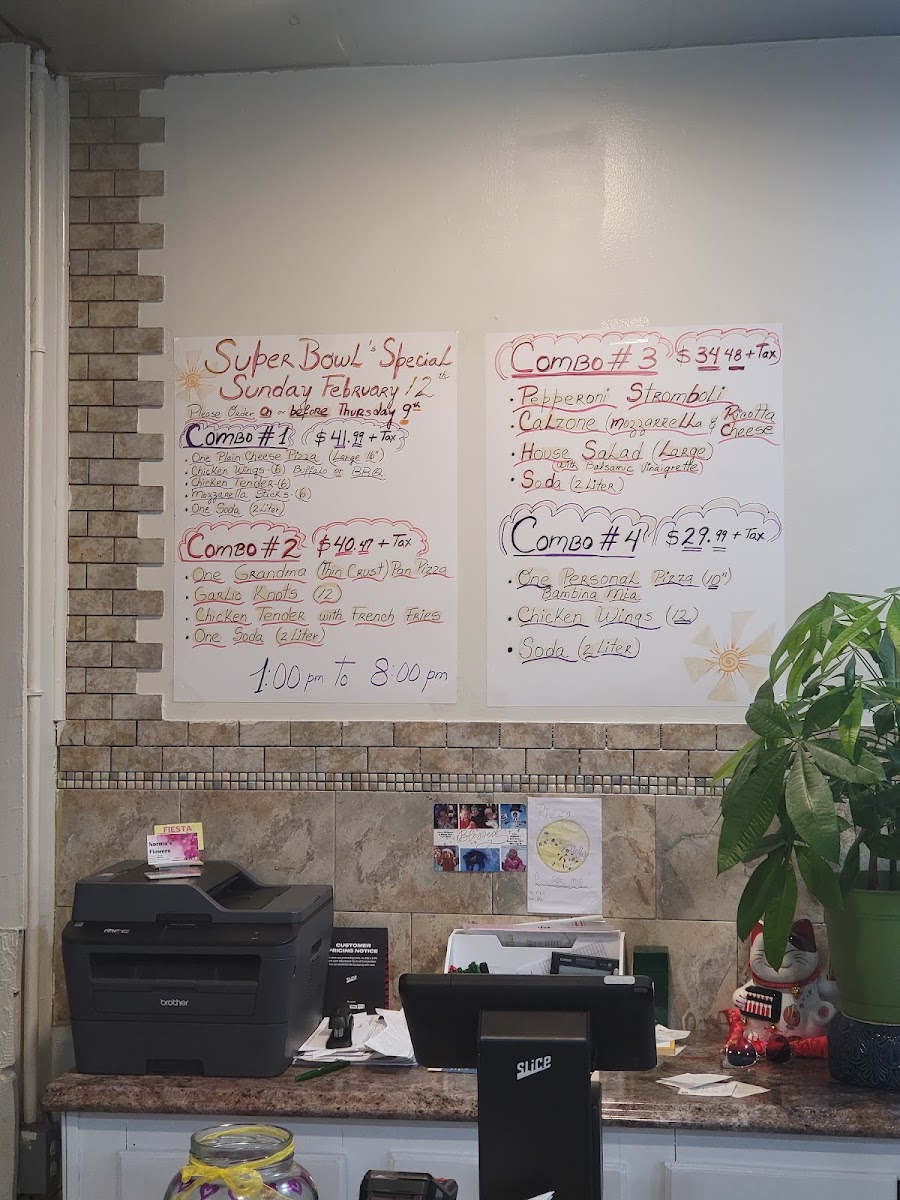 Super Bowl's Special
Sunday February 12th
Please Order on or before Thursday 9th
Combo #1 $41.99 + Tax
• One Plain Cheese Pizza (Large 16")
• Chicken Wings-(6) Buffalo or BBQ
• Chicken Tender-(6)
• Mozzarella Sticks-(6)
• One Soda (2 Liter)
Combo #2 $40.47 + Tax
• One Grandma (Thin Crust) Pan Pizza
• Garlic Knots (12)
• Chicken Tender with French Fries
• One Soda (2 Liter)
1:00 pm To 8:00 pm
Combo #3 $34.48 + Tax
• Pepperoni Stromboli
• Calzone (mozzarrella & Ricotta
Cheese
• House Salad (Large)
with Balsamic Vinaigrette
• Soda (2 Liter)
Combo #4 $29.99 + Tax
• One Personal Pizza (10")
Bambina Mia
• Chicken Wings (12)
• Soda (2 Liter)
Blessed
Pizza
FIESTA
Norma's
Flowers
brother
CUSTOMER
PRICING NOTICE
SLICE
SLICE